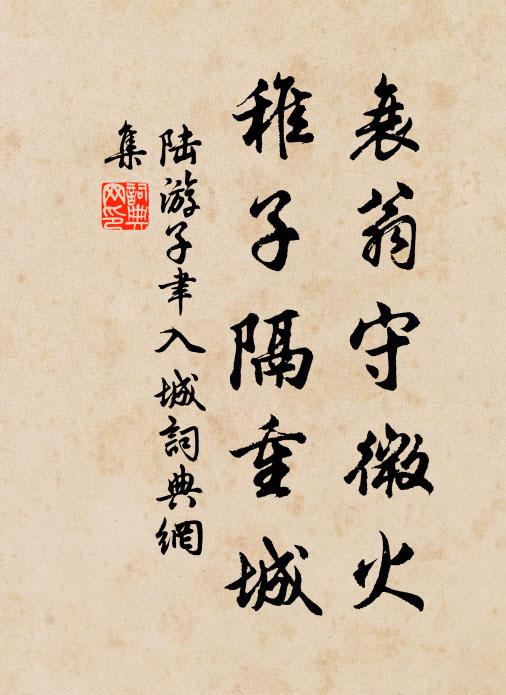 衰翁守微火
稚子隔重城
陆游子聿入城詞典網
集
詞典
网印